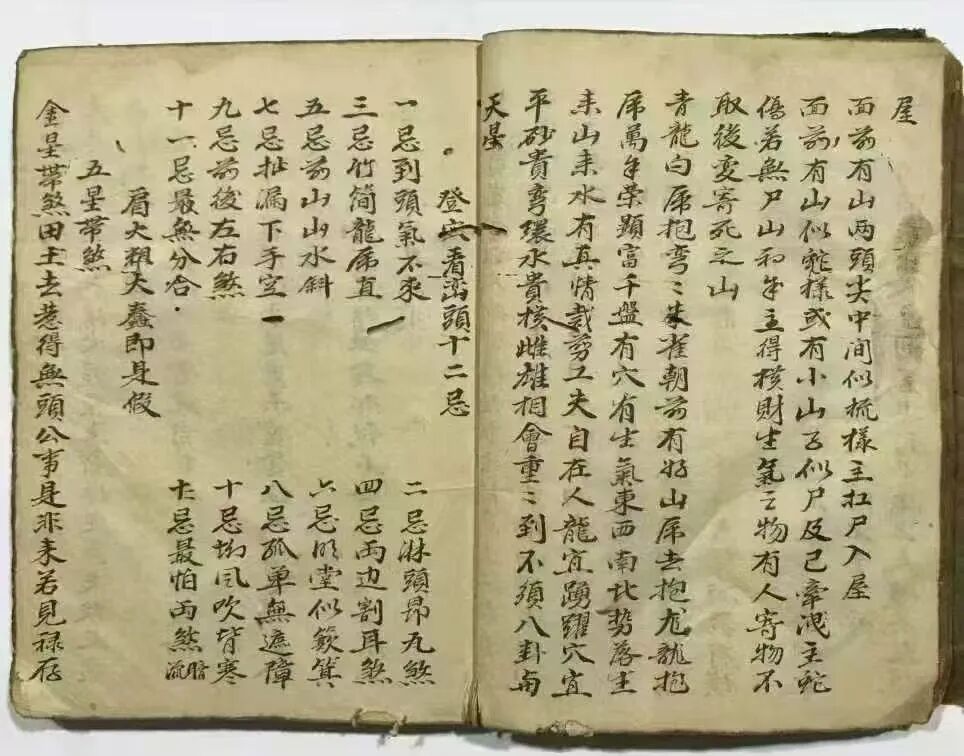 屋
面前有山两頭尖中间似梳樣主扛尸入屋
面前有山似蛇樣或有小山子似尸及己牽洩主蛇
傷若無尸山和年主得横財生氣之物有人寄物不
取後変寄死之山
青龍白席抱弯〻朱雀朝前有好山席去抱龙龍抱
席萬年荣顕富千盤有穴有生氣東西南北势落主
来山来水有真情裁剪工夫自在人龍宜踴躍穴宜
平砂貴弯環水貴横雌雄相會重〻到不須八卦与
天星
登穴看巒頭十二忌
一忌到頭氣不来
二忌淋頭昂丸煞
三忌竹简龍席直
四忌両边割耳煞
五忌前山山水斜
六忌明堂似簸箕
七忌扯漏下手空
八忌孤单無遮障
九忌前後左右煞
十忌坳风吹背寒
十一忌最無分合
十二忌最怕両煞流暗
眉大粗大蠢即是假
五星带煞
金星带煞田土去惹得無頭公事是非来若見禄存